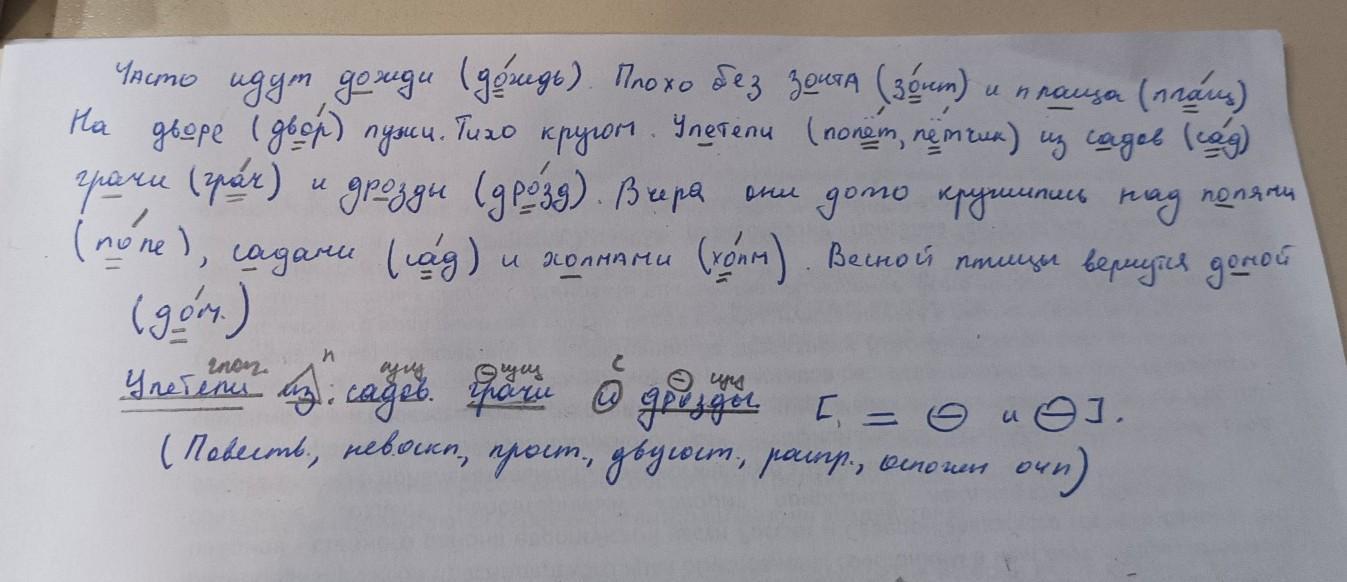 Часто идут дожди (дождь). Плохо без зонта (зонт) и плаща (плащ)
На дворе (двор) лужи. Тихо кругом. Улетели (полёт, лётчик) из садов (сад)
грачи (грач) и дрозды (дрозд). Вчера они долго кружились над полями
(поле), садами (сад) и холмами (холм). Весной птицы вернутся домой
(дом.)
глаг. п сущ сущ с сущ
Улетели из садов. грачи и дрозды. [ = и ].
(Повеств., невоскл., прост., двусост., распр., осложн)